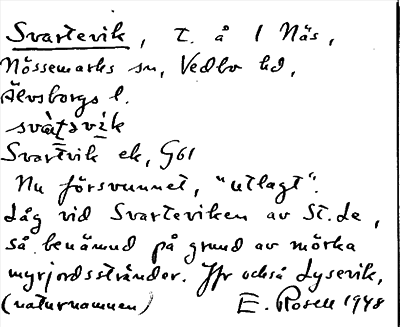 Svartevik, t. å 1 Näs,
Nössemarks sn, Vedbo hd,
Älvsborgs l.
svàt̩əvìk
Svartvik ek, G61
Nu försvunnet, "utlagt".
Låg vid Svarteviken av St. Le,
så benämnd på grund av mörka
myrjordsstränder. Jfr också Lysevik,
(naturnamnen) E. Rosell 1948